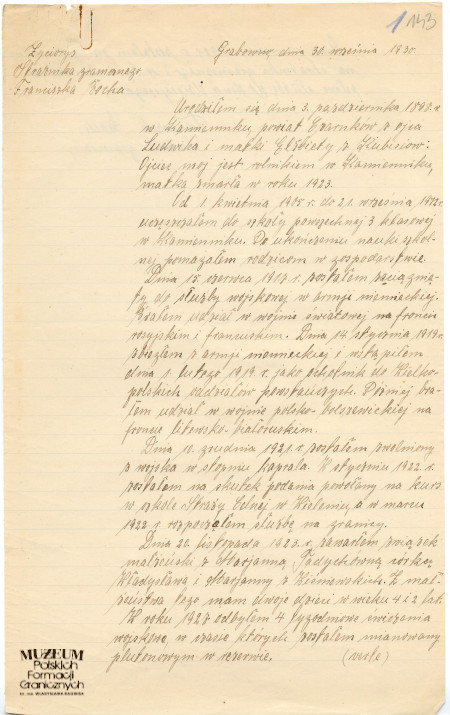 1 143
Życiorys
Strażnika granicznego
Franciszka Kocha
Grabowno, dnia 30. września 1930.
Urodziłem się dnia 3. października 1898. r.
w Kamienniku, powiat Czarnków z ojca
Ludwika i matki Elżbiety z
Ojciec mój jest rolnikiem w Kamienniku,
matka zmarła w roku 1923.
Od 1. kwietnia 1905 r. do 21. września 1912 r.
uczęszczałem do szkoły powszechnej 3 klasowej
w Kamienniku. Po ukończeniu nauki szkol-
nej pomagałem rodzicom w gospodarstwie.
Dnia 15. czerwca 1917 r. zostałem zaciągnię-
ty do służby wojskowej w armji niemieckiej.
Brałem udział w wojnie światowej na froncie
rosyjskim i francuskim. Dnia 14. stycznia 1919 r.
zbiegłem z armji niemieckiej i wstąpiłem
dnia 1. lutego 1919. r. jako ochotnik do Wielko-
polskich oddziałów powstańczych. Później bra-
łem udział w wojnie polsko-bolszewickiej na
froncie litewsko-białoruskim.
Dnia 10. grudnia 1921. r. zostałem zwolniony
z wojska w stopniu kaprala. W styczniu 1922. r.
zostałem na skutek podania powołany na kurs
w szkole Straży Celnej w Wieleniu, a w marcu
1922. r. rozpocząłem służbę na granicy.
Dnia 20. listopada 1923. r. zawarłem związek
małżeński z Marjanną córką
Władysława i Marjanny z Z mał-
żeństwa tego mam dwoje dzieci w wieku 4 i 2 lat.
W roku 1927 odbyłem 4 tygodniowe ćwiczenia
wojskowe, w czasie których zostałem mianowany
plutonowym w rezerwie. (verte)
MUZEUM
Polskich
Formacji
Granicznych